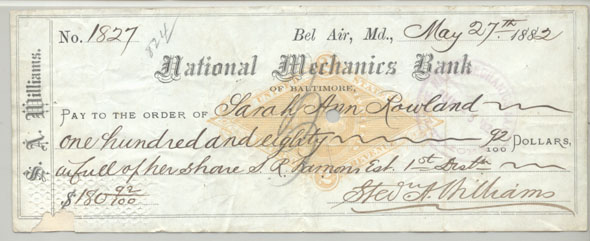 No. 1827 Bel Air, Md., May 27th 1882
824
National Mechanics Bank
OF BALTIMORE,
PAY TO THE ORDER OF Sarah Ann Rowland
one hundred and eighty 92/100 DOLLARS,
in full of her share S. R. Est. 1st Distn
$180 92/100 Sted. A. Williams
S. A. Williams.